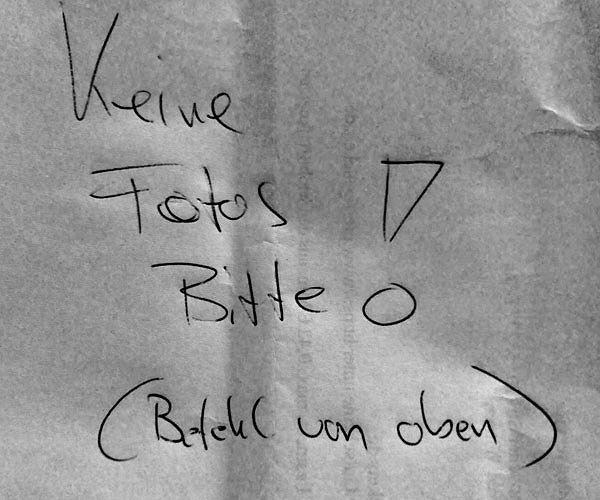 Keine
Fotos
Bitte !
(Befehl von oben)